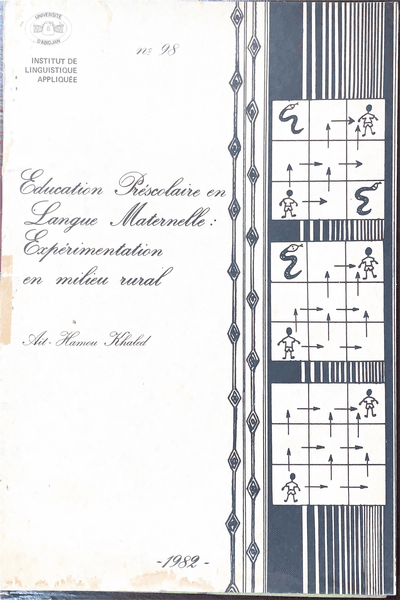 UNIVERSITÉ
D'ABIDJAN
INSTITUT DE
LINGUISTIQUE
APPLIQUÉE
nº 98
Education Préscolaire en
Langue Maternelle :
Expérimentation
en milieu rural
Aït-Hamou Khaled
-1982-